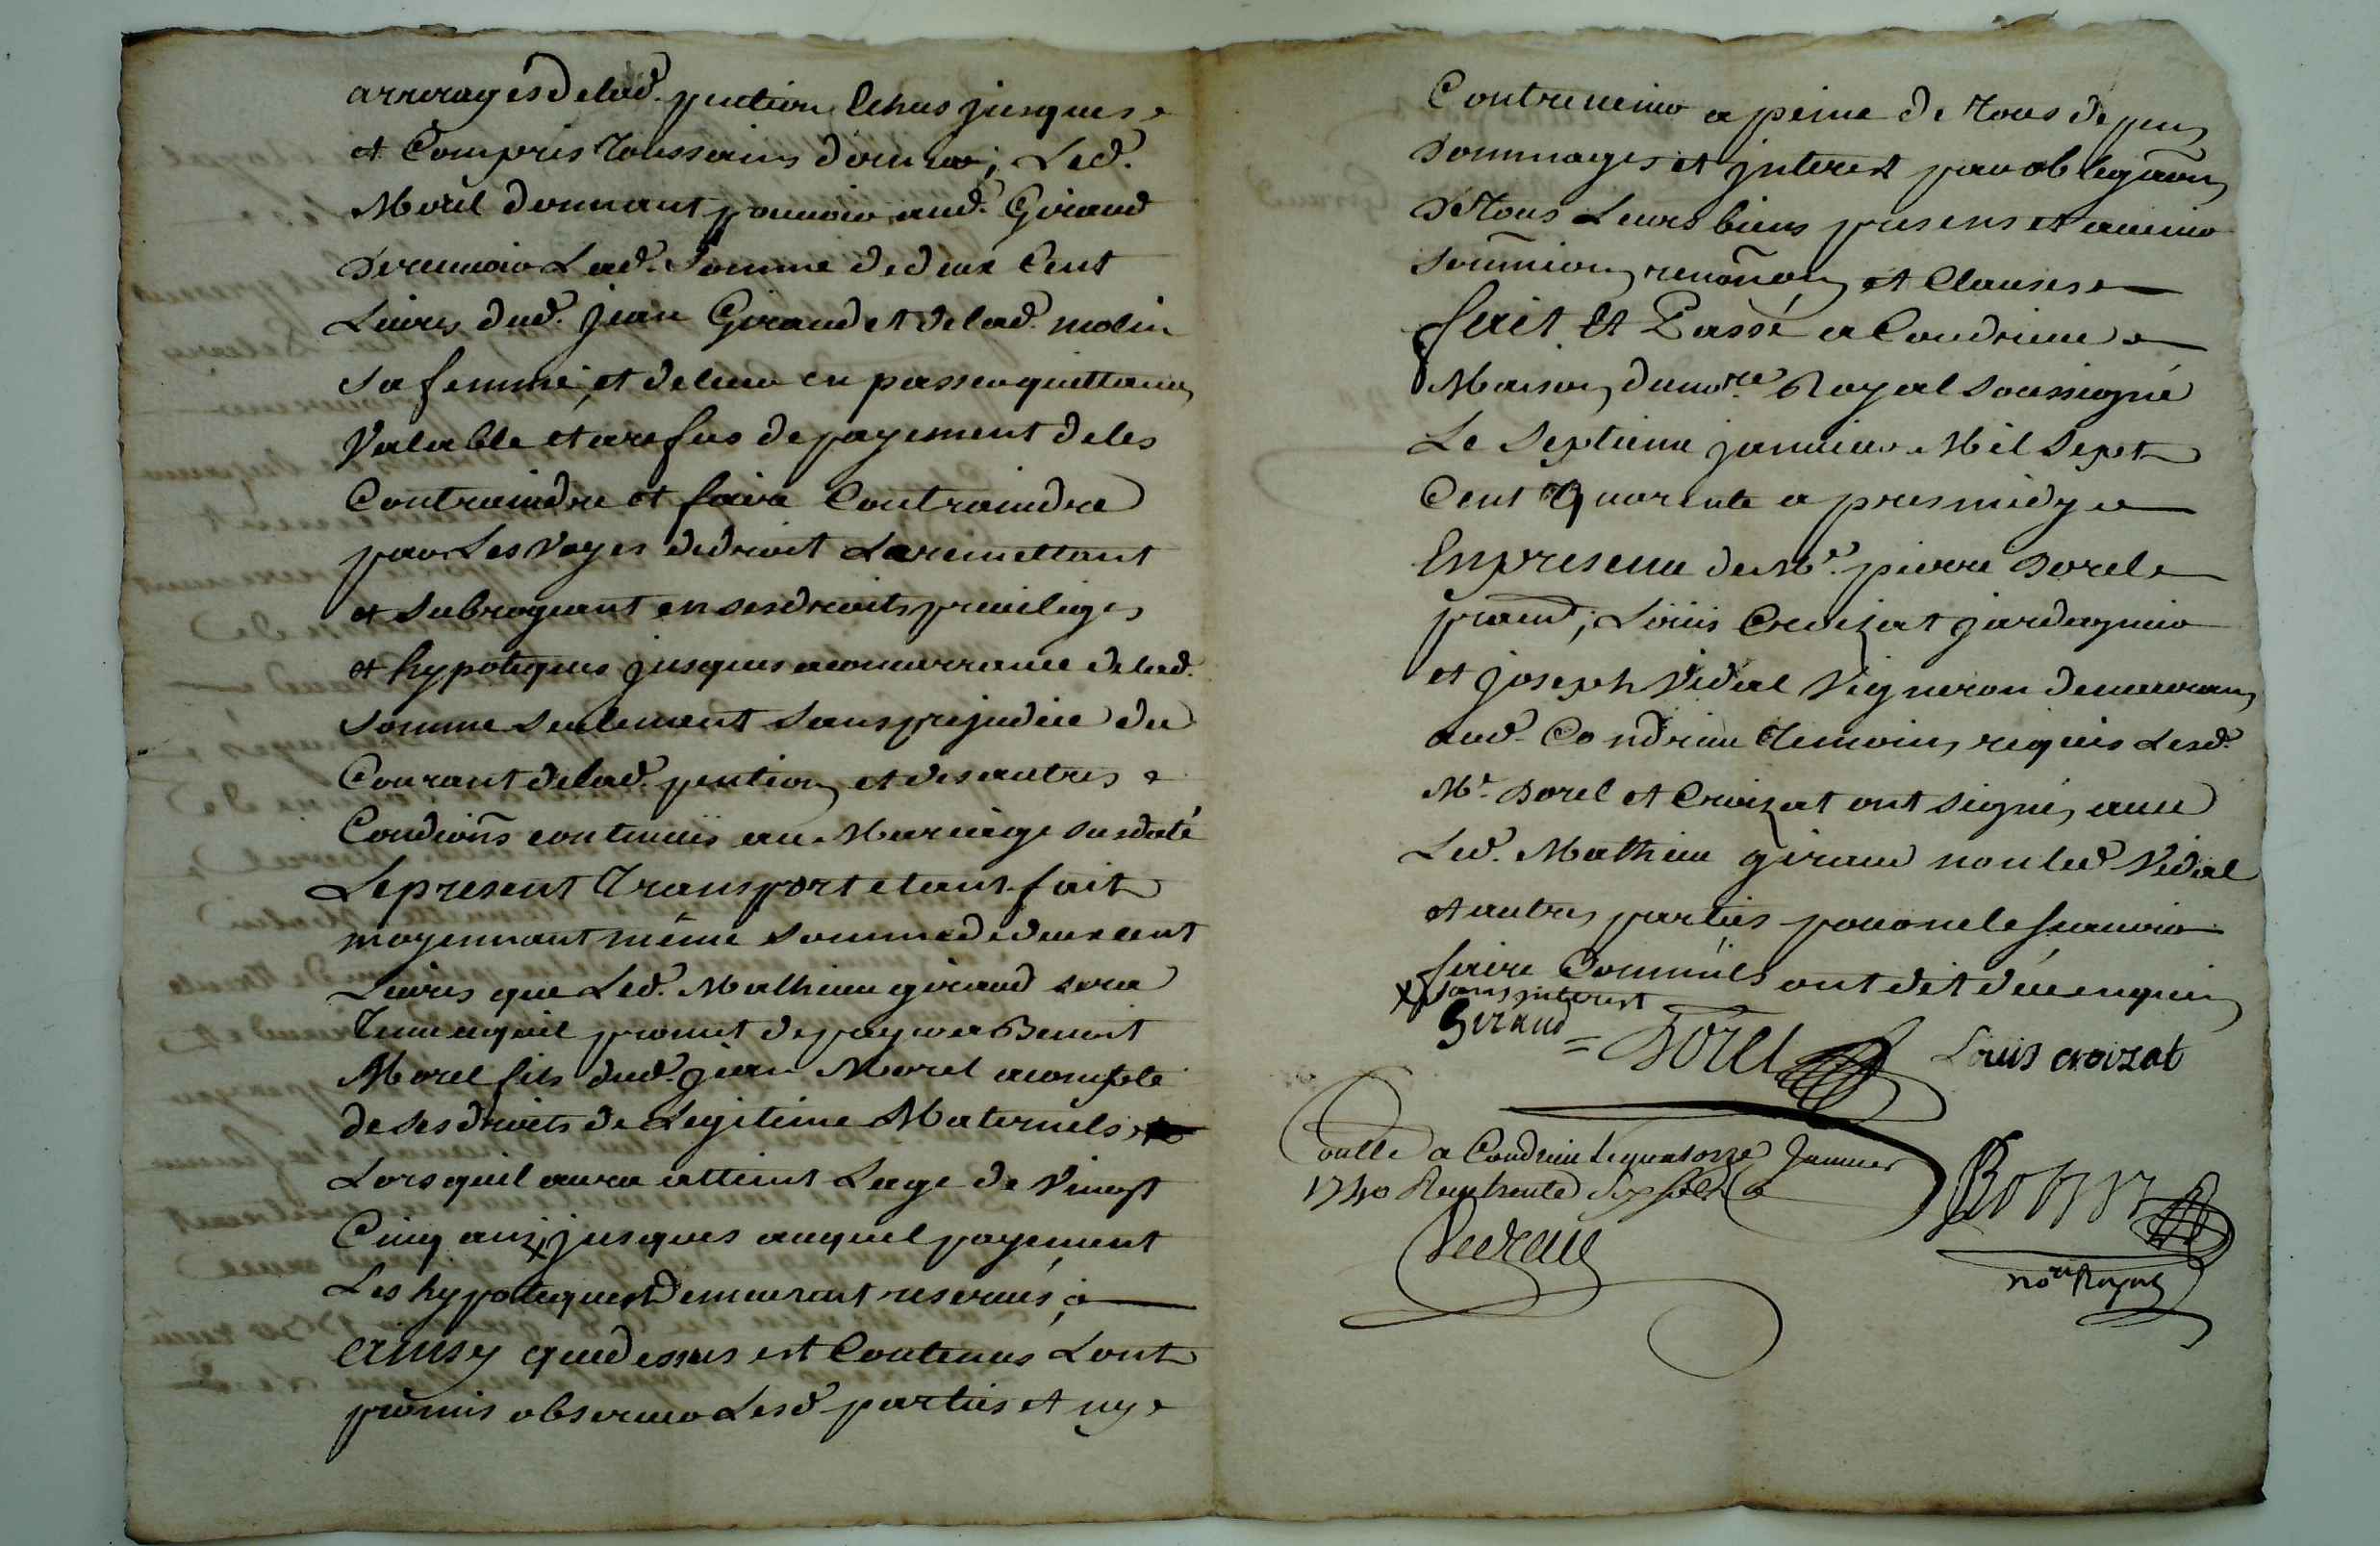 arrerages de lad. pention echus jusques
et Compris Toussains dernier; Led.
Morel donnant pouvoir aud. Giraud
de recevoir Lad. Somme de deux Cent
Livres dud. jean Giraud et de lad. molin
sa femme, et de leur en passer quittance
Valable et arefus de payement de les
Contraindre et faire Contraindre
par Les Voyes de droit Le remettant
et Subrogeant en ses droits privileges
et hypoteques jusques a concurrance de lad.
somme seulement sans prejudice du
Courant de lad. pention et des autres
Condions contenues au Mariage susdaté
Le present Transport etant fait
moyennant même somme de deux cent
Livres que Led. Mathieu giraud sera
Tenu et quil promet de payer a Benoit
Morel fils dud. jean Morel acompte
de ses droits de Legitime Maternels
Lors quil aura atteint Lage de Vingt
Cinq ans x jusques auquel payement
Les hypoteques Demeurent reservés
ainsy que dessus est Contenus Lont
promis observer Lesd. parties et ny
Contrevenir a peine de Tous depens
dommages et jnterest par obligaon
de Tous Leurs biens presens et avenir
soumion renonon et Clauses
fait et Passé a Condrieu
Maison dud. nore Royal soussigné
Le Septieme janvier Mil Sept
Cent Quarente apres midy
En presence de Mr. pierre Dorel
prand; Loüis Croizat jardagnier
et joseph Vidal Vigneron demeurans
aud. Condrieu Temoins requis Lesd.
Mr. Dorel et Croizat ont signé, avec
Led. Mathieu giraud non led. Vidal
et autres parties pour ne le scavoir
faire Commils ont dit de ce enquis
x sans interest
Giraud = Dorel Loüis croizat
Conllé a Condrieu le quatorze Janvier
1740 Reçu trente Six sols
nore Royal